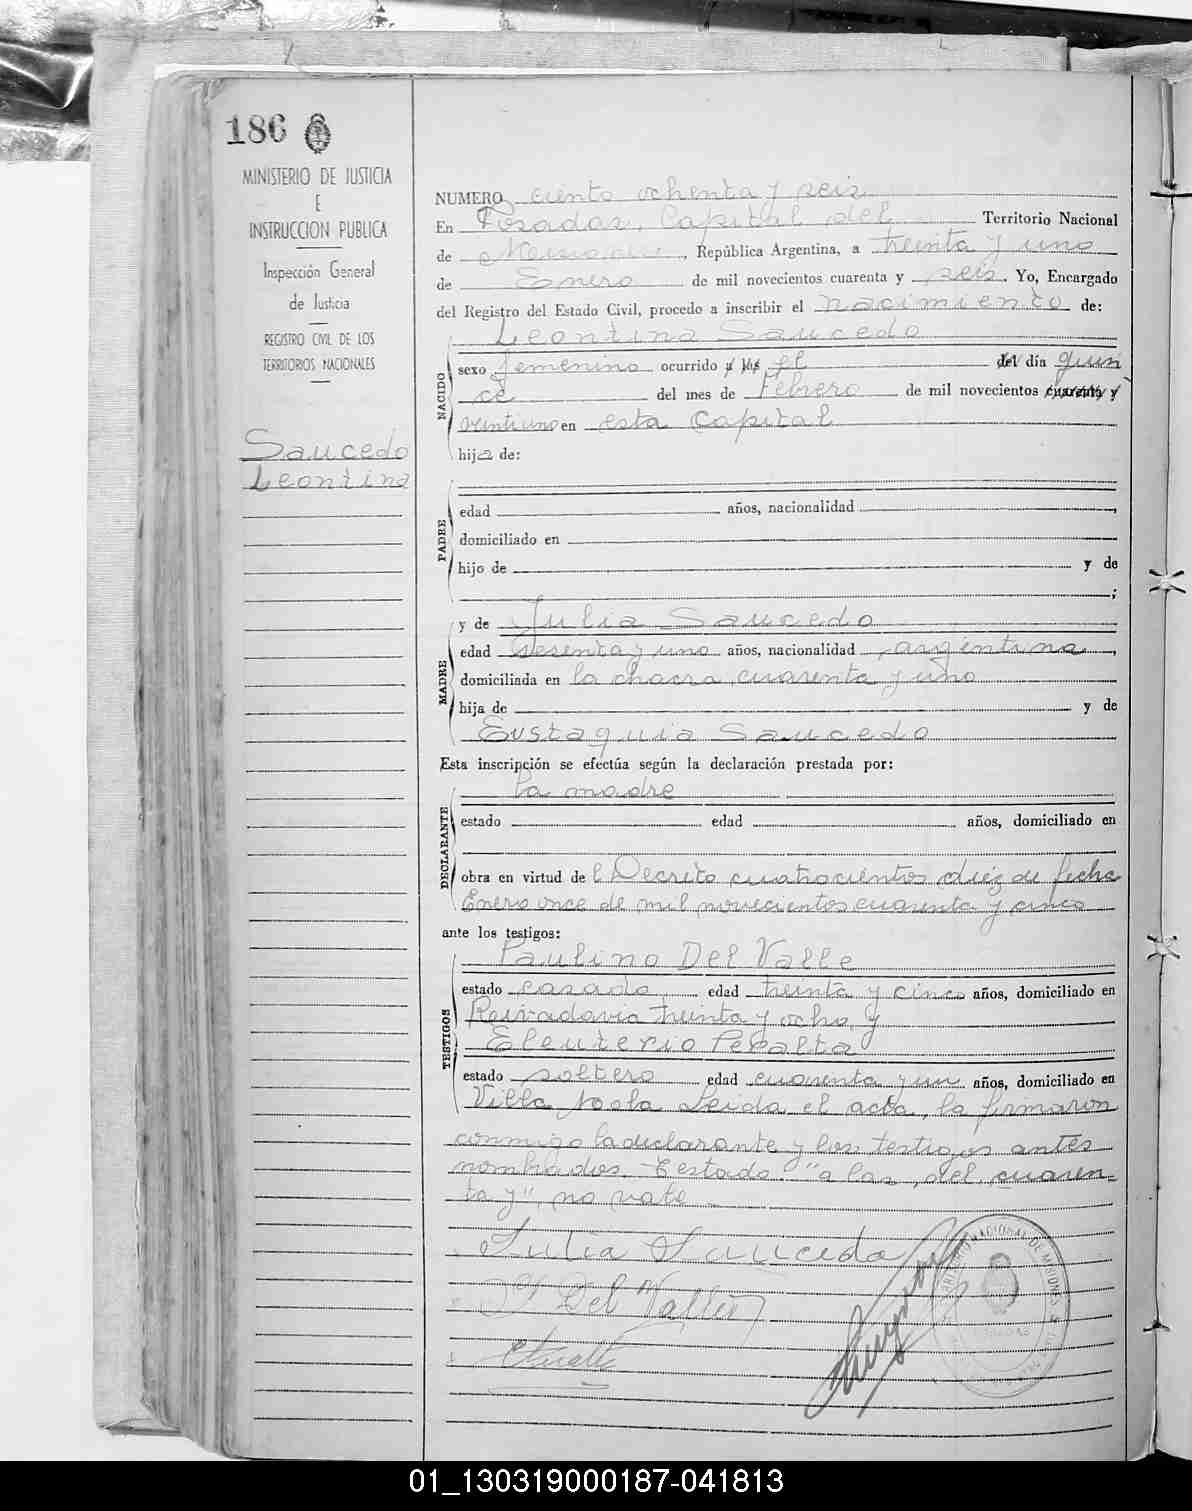 186
MINISTERIO DE JUSTICIA
E
INSTRUCCION PUBLICA
Inspección General
de Justicia
REGISTRO CIVIL DE LOS
TERRITORIOS NACIONALES
Saucedo
Leontina
NUMERO ciento ochenta y seis
En Posadas, Capital del Territorio Nacional
de Misiones, República Argentina, a treinta y uno
de Enero de mil novecientos cuarenta y seis. Yo, Encargado
del Registro del Estado Civil, procedo a inscribir el nacimiento de:
Leontina Saucedo
NACIDO
sexo femenino ocurrido a las el del día quin
ce del mes de Febrero de mil novecientos cuarenta y
veintiuno en esta Capital
hija de:
PADRE
edad años, nacionalidad ,
domiciliado en
hijo de y de
;
y de Julia Saucedo
MADRE
edad sesenta y uno años, nacionalidad argentina,
domiciliada en la chacra cuarenta y uno
hija de y de
Eustaquia Saucedo
Esta inscripción se efectúa según la declaración prestada por:
la madre
DECLARANTE
estado edad años, domiciliado en
obra en virtud del Decreto cuatrocientos diez de fecha
Enero once de mil novecientos cuarenta y cinco
ante los testigos:
Paulino Del Valle
TESTIGOS
estado casado edad treinta y cinco años, domiciliado en
Reivadavia treinta y ocho y
Eleuterio Peralta
estado soltero edad cuarenta y un años, domiciliado en
Villa Leida el acta, la firmaron
conmigo la declarante y los testigos antes
nombrados. Testado: "a las, del, cuaren-
ta y", no vale
Julia Saucedo
Del Valle
01_130319000187-041813